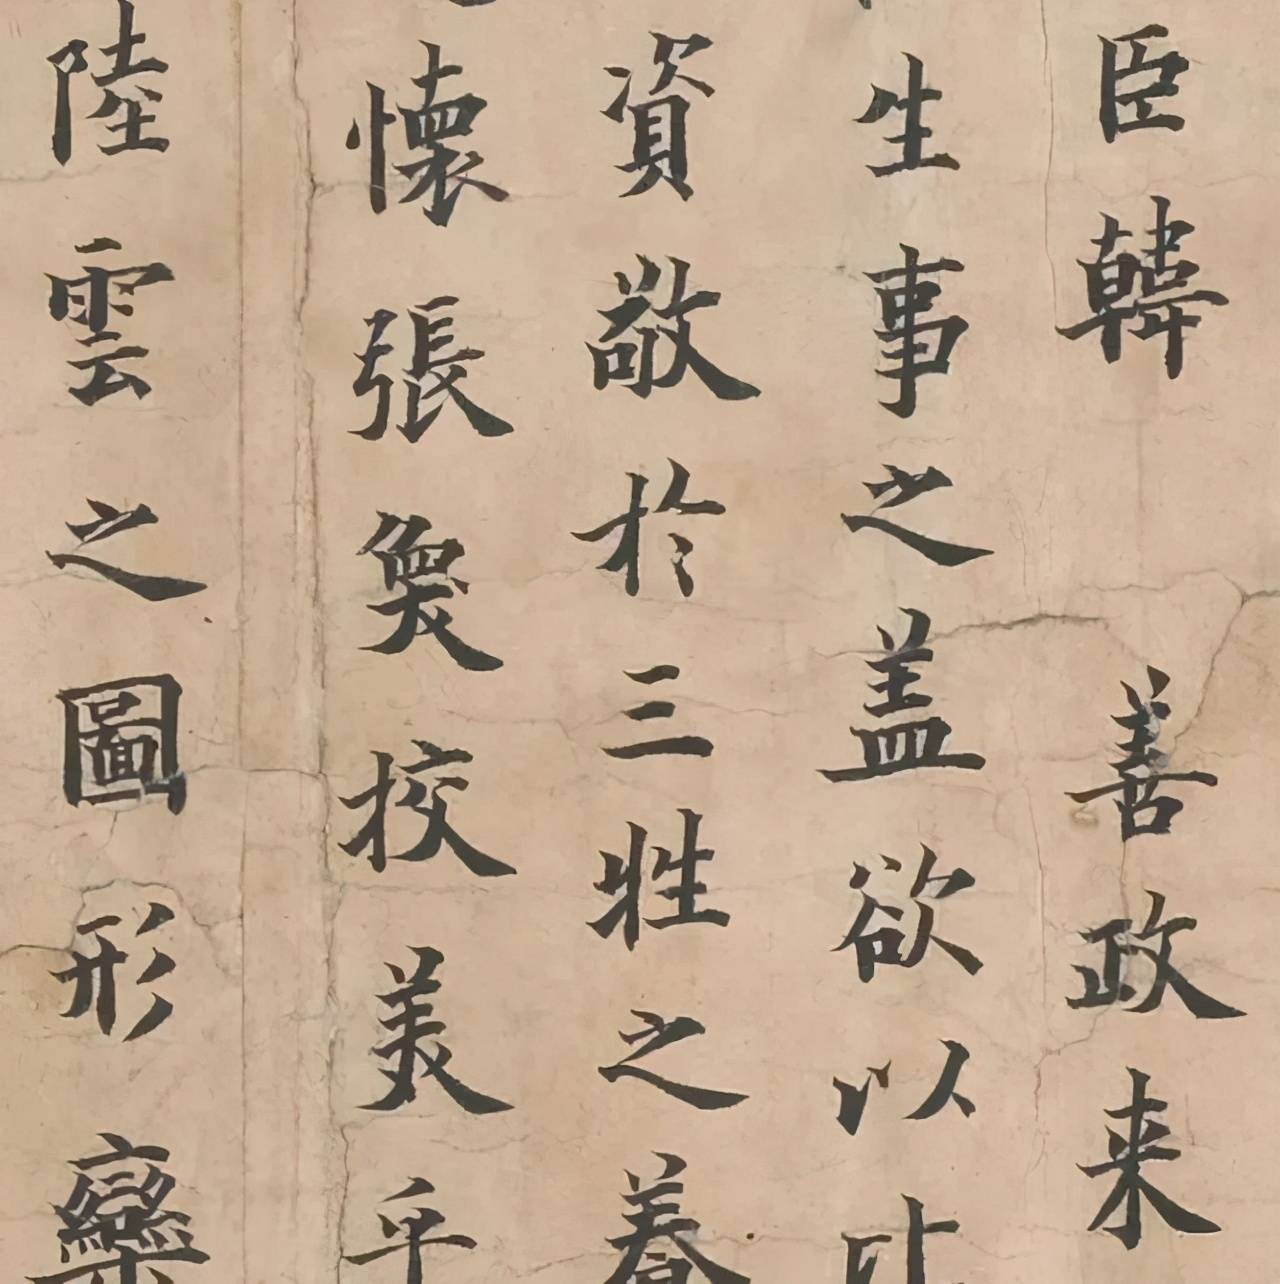 臣韓 善政来
生事之盖欲以
資敬於三牲之養
懷張奐挍美乎
陸雲之圖形欒